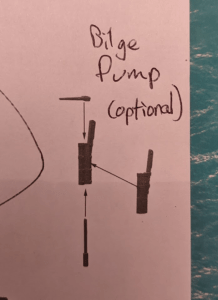 Bilge
Pump
(optional)